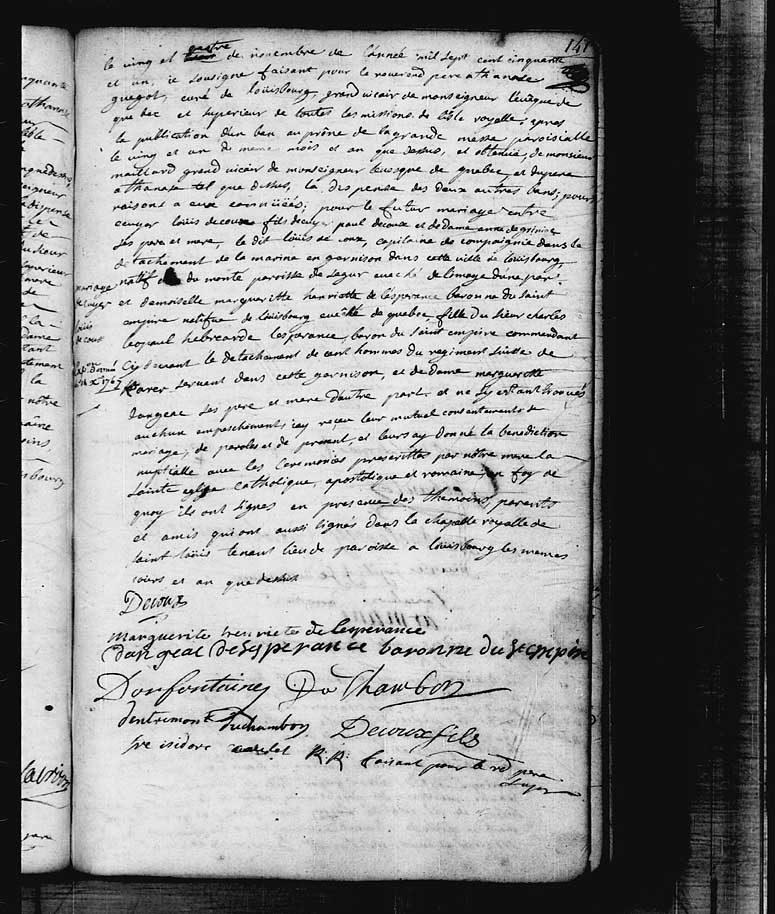 141
le vingt et quatre de novembre de l'année mil sept cent cinquante
et un, ie sousigne faisant pour le reverend pere athanase
guegot, curé de loüisbourg, grand vicair de monseigneur l'eveque de
quebec et superieur de toutes les missions de l'isle royalle, apres
la publication d'un ban au prône de la grande messe paroisialle
le vingt et un de meme mois et an que dessus, et obtenüe, de monsieur
maillard grand vicair de monseigneur levesque de quebec, et du pere
athanase tel que dessus, la dispense des deux autres bans; pour
raisons a eux connüées; pour le futur mariage entre
ecuyer loüis decoux fils decuyer paul decoux et de dame anne de
ses pere et mere, le dit loüis de coux, capitaine de compaignie dans le
detachement de la marine en garnison dans cette ville de loüisbourg,
natif du monte paroisse de segur eveché de limoge dune part
et demoiselle marguerite henriette de l'esperance baronne du saint
empire natifve de loüisbourg eveché de quebec, fille du sieur charles
leopaul hebrearde lesperance, baron du saint empire commandant
Cy devant le detachement de cent hommes du regiment suisse de
Karer servant dans cette garnison, et de dame marguerite
dangeac ses pere et mere d'autre part. et ne sy estant trouvés
auchun empeschement; iay reçeu leur mutuel consentement de
mariage, de paroles et de present, et leurs ay donné la benediction
nuptialle avec les Ceremonies prescrittes par nôtre mere la
sainte eglise catholique, apostolique et romaine, en foy de
quoy ils ont signes en presence des themoins, parents
et amis qui ont aussi signes dans la chapelle royalle de
saint loüis tenant lieu de paroisse a loüisbourg les memes
iours et an que dessus
mariage
loüis
de coux
donné
1767
Decoux
marguerite henriete de Lesperance
dangeac de Lesperance baronne du st empire
Donfontaines Du Chambon
dentremont Duchambon Decoux fils
fre isidore R: R: faisant pour le rd pere